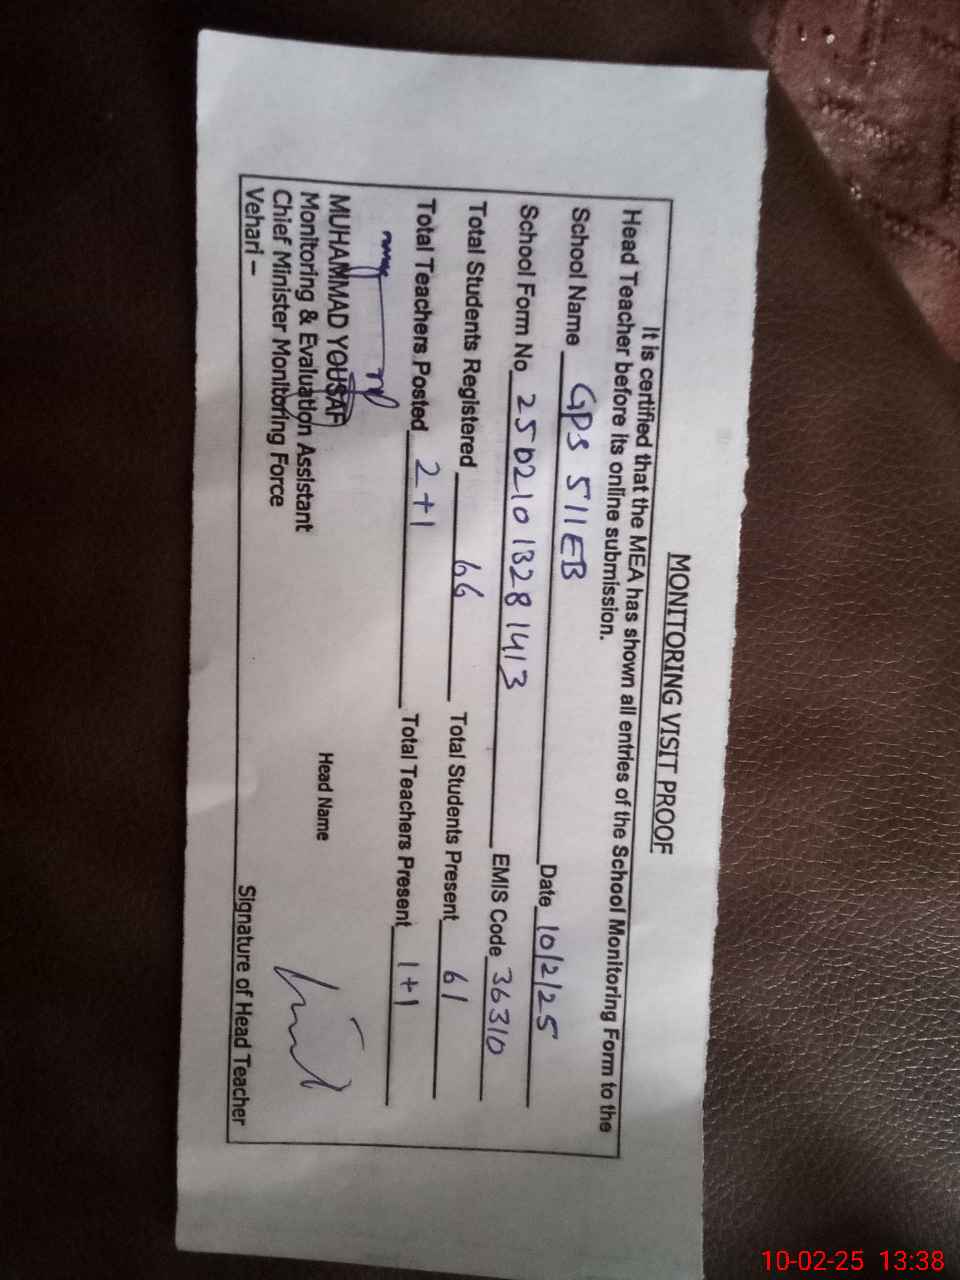 MONITORING VISIT PROOF
It is certified that the MEA has shown all entries of the School Monitoring Form to the
Head Teacher before its online submission.
School Name GPS 511EB Date 10/2/25
School Form No 2502101328 1413 EMIS Code 36310
Total Students Registered 66 Total Students Present 61
Total Teachers Posted 2+1 Total Teachers Present 1+1
MUHAMMAD YOUSAF
Monitoring & Evaluation Assistant
Chief Minister Monitoring Force
Vehari –
Head Name
Signature of Head Teacher
10-02-25 13:38